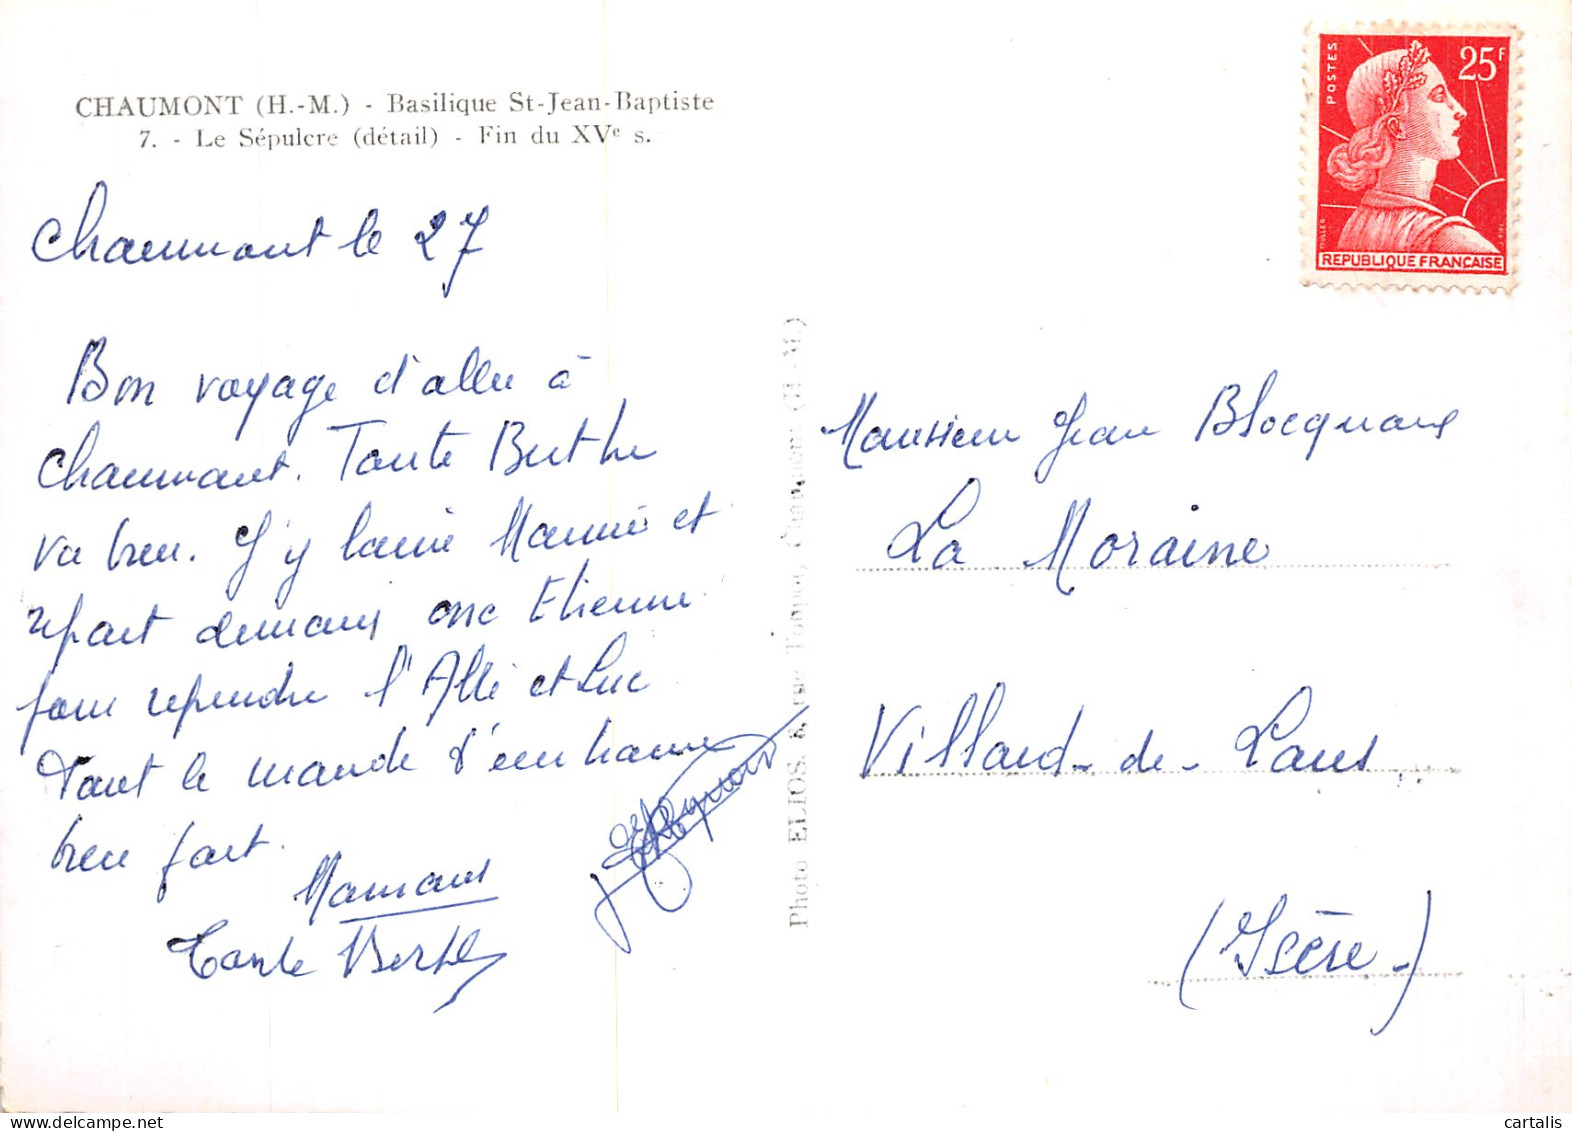 CHAUMONT (H.-M.) - Basilique St-Jean-Baptiste
7. - Le Sépulcre (détail) - Fin du XVe s.
Chaumont le 27
Bon voyage d'aller à
Chaumont. Tante Berthe
va bien. J'y laisse Mamie et
repart demain avec Etienne
pour reprendre l'Allé et Luc
Tout le monde t'embrasse
bien fort.
Maman
Tante Berthe
Photo ELIOS. 8, rue Toupot, Chaumont (H.-M.)
POSTES
25F
MULLER
REPUBLIQUE FRANÇAISE
Monsieur Jean Blocquaux
La Moraine
Villard-de-Lans
(Isère-)
cartalis